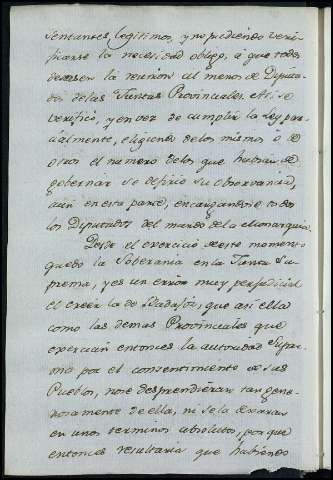 sentantes legitimos, y no pudiendo veri-
ficarse la necesidad obligó, á que todos
deseasen la reunion al menos de Diputa-
dos de las Juntas Provinciales. Asi se
verificó, y en vez de cumplir la Ley par-
cialmente, eligiendo de los mismos ó de
otros el numero de los que habian de
gobernar se defirió su observancia,
aun en esta parte, encargandose todos
los Diputados del mando de la Monarquia.
Desde el exercicio de este momento
quedó la Soberania en la Junta Su-
prema, y es un error muy perjudicial
el creer la de Badajoz, que asi ella
como las demas Provinciales que
exercian entonces la autoridad Supre-
ma por el consentimiento de sus
Pueblos, no se desprendieran tan gene-
rosamente de ella, ni se la dexaran
en unos terminos absolutos, porque
entonces resultaria que habiendo